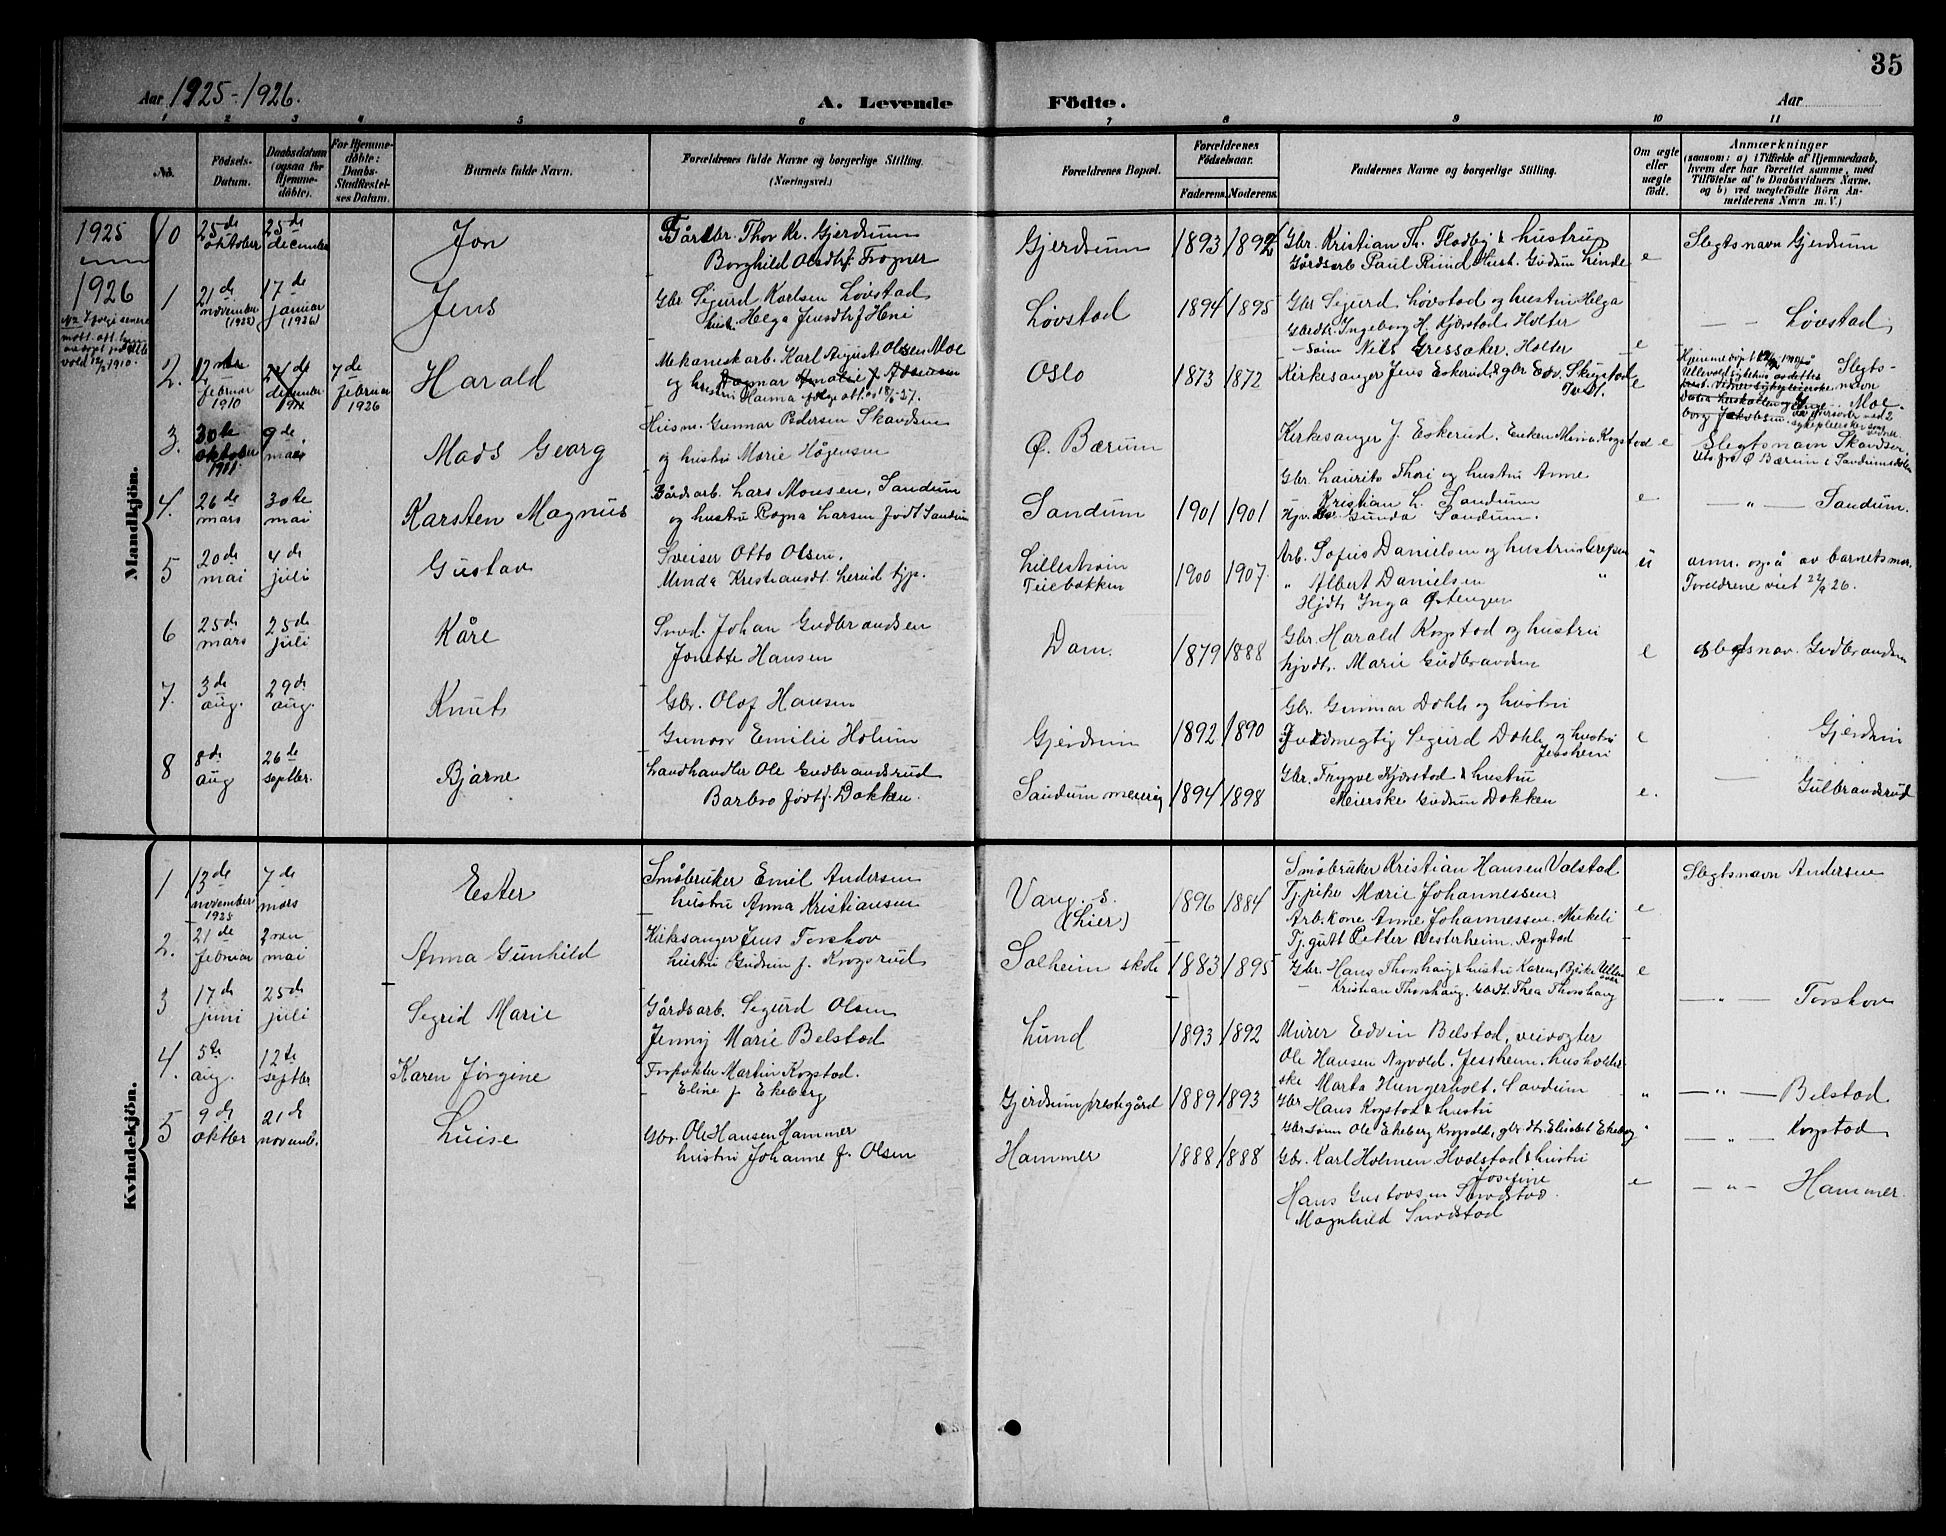 35
Aar 1925-1926. A. Levende Födte. Aar
1 2 3 4 5 6 7 8 9 10 11
No.
Födsels-Datum.
Daabsdatum (ogsaa for Hjemmedöbte).
For Hjemmedöbte: Daabs-Stadfæstelses Datum.
Barnets fulde Navn.
Forældrenes fulde Navne og borgerlige Stilling. (Næringsvei.)
Forældrenes Bopæl.
Forældrenes Födselsaar.
Faderens. Moderens.
Faddernes Navne og borgerlige Stilling.
Om ægte eller uægte födt.
Anmærkninger (saasom: a) i Tilfælde af Hjemmedaab, hvem der har forrettet samme, med Tilföielse af to Daabsvidners Navne, og b) ved uægtefödte Börn Anmelderens Navn m. V.)
Mandkjön.
1925
10 25de oktober 25de december Jon
Gårdbr. Thor Kr. Gjerdrum
Borghild Olsdtr f. Frogner
Gjerdrum 1893 1892
Gbr. Kristian Th. Flodby & hustru
Gårdsarb Paul Rund Hust. Gudrun Linde
e Slegtsnavn Gjerdrum
1926
1 21de november (1925) 17de januar (1926) Jens
Gbr Sigurd Karlsen Løvstad
hust. Helga Jensdtr f Heni
Løvstad 1894 1895
Gbr Sigurd Løvstad og hustru Helga
Gbrdtr. Ingeborg H Kjærstad Holter
— søn Nils Gressaker, Holter
e — — Løvstad
2. februar 1910 december 7de februar 1926 Harald
Mekanisk arb. Karl August Olsen Moe
og hustru
Oslo 1873 1872
Kirkesanger Jens Eskerud & gbr Edv. Skrigstad
e Slegts-navn Moe
3. 30te oktober 1911 9de mai Mads Georg
Husm. Gunnar Pedersen Skandsen
og hustru Marie Hågensen
Ø. Bærum
Kirkesanger J. Eskerud. Enken Mina Kogstad
e Slegtsnavn Skandsen
4. 26de mars 30te mai Karsten Magnus
Gårdsarb. Lars Monsen, Sandum
og hustru Ragna Larsen født Sandum
Sandum 1901 1901
Gbr. Laurits Thori og hustru Anne
Kristian L. Sandum
Gunda Sandum.
e — " — Sandum.
5 20de mai 4de juli Gustav
Sveiser Otto Olsen.
Minda Kristiansdt. Lerud tjp.
Lillestrøm
Teiebakken
1900 1907.
Arb. Sofus Danielsen og hustru
" Albert Danielsen "
Hjdtr Inga Østengen
u anm. også av barnets mor.
Foreldrene viet 22/9 26.
6 25de mars 25de juli Kåre
Smed. Johan Gudbrandsen
Jonette Hansen
Dam. 1879 1888
Gbr Harald Kogstad og hustru
hjvdt. Marie Gudbrandsen
e slegtsnav. Gudbrandsen
7. 3de aug. 29de aug. Knut
Gbr. Olaf Hansen
Gunvor Emilie Holum
Gjerdrum 1892 1890
Gbr. Gunnar Dahl og hustru
Fuldmegtig Sigurd Dahl og hustru
Jessheim
e Gjerdrum
8 8de aug 26de septbr. Bjarne
Landhandler Ole Gudbrandsrud
Barbro født Dokken.
Sandum meieri 1894 1898
Gbr. Trygve Kjærstad & hustru
Meierske Gudrun Dokken
e. — Gulbrandsrud
Kvindekjön.
1 13de november 1925 7de mars Ester
Småbruker Emil Andersen
hustru Anna Kristiansen
Vang. s.
(Lier)
1896 1884
Småbruker Kristian Hansen Valstad
Tj.pike Marie Johannessen
Arb. kone Anne Johannessen, Mikeli
Tj. gutt Petter Vesterheim. Rogstad
e Slegtsnavn Andersen
2. 21de februar 2nen mai Anna Gunhild
Kirkesanger Jens Torshov
hustru Gudrun f. Krogsrud
Solheim skole 1883 1895
Gbr. Hans Thorshaug & hustru Karen,
Kristian Thorshaug. Gbrdt. Thea Thorshaug
e — " — Torshov
3 17de juni 25de juli Sigrid Marie
Gårdsarb. Sigurd Olsen
Jenny Marie Belstad
Lund 1893 1892
Murer Edvin Belstad, veivogter
Ole Hansen Nyvold, Jessheim, husholder-
ske Marta Hungerholt. Sandum
" — " — Belstad
4. 5te aug. 12te septbr Karen Jørgine
Forpakter Martin Kogstad.
Eline f Ekeberg
Gjerdrum prestegård 1889 1893
Gbr Hans Kogstad & hustru
Gbr. sønn Ole Ekeberg Krogvold, gbr. dtr. Elisabet Ekeberg
" — " — Kogstad
5 9de oktbr 21de novemb. Luise
Gbr. Ole Hansen Hammer
hustru Johanne f. Olsen
Hammer 1888 1888
Gbr. Karl Holmen Hvalstad & hustru
Josefine
Hans Gustavsen Smedstad.
Magnhild Smedstad
e — " — Hammer.